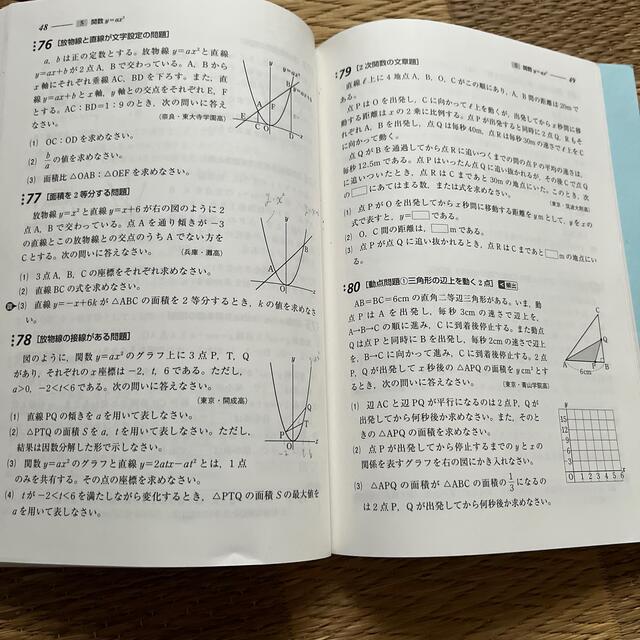 48 5 関数 y=ax²
76 [放物線と直線が文字設定の問題]
a, b は正の定数とする。放物線 y=ax² と直線
y=ax+b が2点 A, B で交わっている。A, B から
x 軸にそれぞれ垂線 AC, BD を下ろす。また,直
線 y=ax+b と x 軸, y 軸との交点をそれぞれ E, F
とする。AC:BD=1:9 のとき,次の問いに答え
なさい。 (奈良・東大寺学園高)
(1) OC:OD を求めなさい。
(2) b/a の値を求めなさい。
(3) 面積比 △OAB:△OEF を求めなさい。
77 [面積を2等分する問題]
放物線 y=x² と直線 y=x+6 が右の図のように2
点 A, B で交わっている。点 A を通り傾きが −3
の直線とこの放物線との交点のうち A でない方を
C とする。次の問いに答えなさい。 (兵庫・灘高)
(1) 3点 A, B, C の座標をそれぞれ求めなさい。
(2) 直線 BC の式を求めなさい。
(3) 直線 y=−x+6k が △ABC の面積を2等分するとき, k の値を求めなさ
い。
78 [放物線の接線がある問題]
図のように,関数 y=ax² のグラフ上に3点 P, T, Q
があり,それぞれの x 座標は −2, t, 6 である。ただし,
a>0, −2<t<6 である。次の問いに答えなさい。
(東京・開成高)
(1) 直線 PQ の傾きを a を用いて表しなさい。
(2) △PTQ の面積 S を a, t を用いて表しなさい。ただし,
結果は因数分解した形で示しなさい。
(3) 関数 y=ax² のグラフと直線 y=2atx−at² とは, 1点
のみを共有する。その点の座標を求めなさい。
(4) t が −2<t<6 を満たしながら変化するとき, △PTQ の面積 S の最大値を
a を用いて表しなさい。
5 関数 y=ax² 49
79 [2次関数の文章題]
直線 ℓ 上に4地点 A, B, O, C がこの順にあり, A, B 間の距離は 20m で
ある。
点 P は O を出発し, C に向かって ℓ 上を動くが,出発してから x 秒間に移
動する距離は x の2乗に比例する。点 P が出発すると同時に2点 Q, R もそ
れぞれ A, B を出発し,点 Q は毎秒 40m, 点 R は毎秒 30m の速さで ℓ 上を C
に向かって動く。
点 Q が B を通過してから点 R に追いつくまでの間の点 P の平均の速さは,
毎秒 12.5m である。点 P はいったん点 Q に追い抜かれるが,その後 C で点 Q
に追いついたとき,点 R は C まであと 30m の地点にいた。このとき,次
の□にあてはまる数,または式を求めなさい。 (東京・筑波大附高)
(1) 点 P が O を出発してから x 秒間に移動する距離を y m として, y を x の
式で表すと, y=□である。
(2) O, C 間の距離は, □m である。
(3) 点 P が点 Q に追い抜かれるとき,点 R は C まであと□m の地点にい
る。
80 [動点問題①三角形の辺上を動く2点] 頻出
AB=BC=6cm の直角二等辺三角形がある。いま,動
点 P は A を出発し,毎秒 3cm の速さで辺上を,
A→B→C の順に進み, C に到着後停止する。また動点
Q は点 P と同時に B を出発し,毎秒 2cm の速さで辺上
を, B→C に向かって進み, C に到着後停止する。2点
P, Q が出発して x 秒後の △APQ の面積を y cm² とす
るとき,次の問いに答えなさい。 (東京・青山学院高)
(1) 辺 AC と辺 PQ が平行になるのは2点 P, Q が
出発してから何秒後か求めなさい。また,そのと
きの △APQ の面積を求めなさい。
(2) 点 P が出発してから停止するまでの y と x の
関係を表すグラフを右の図にかき入れなさい。
(3) △APQ の面積が △ABC の面積の 1/3 になるの
は2点 P, Q が出発してから何秒後か求めなさい。